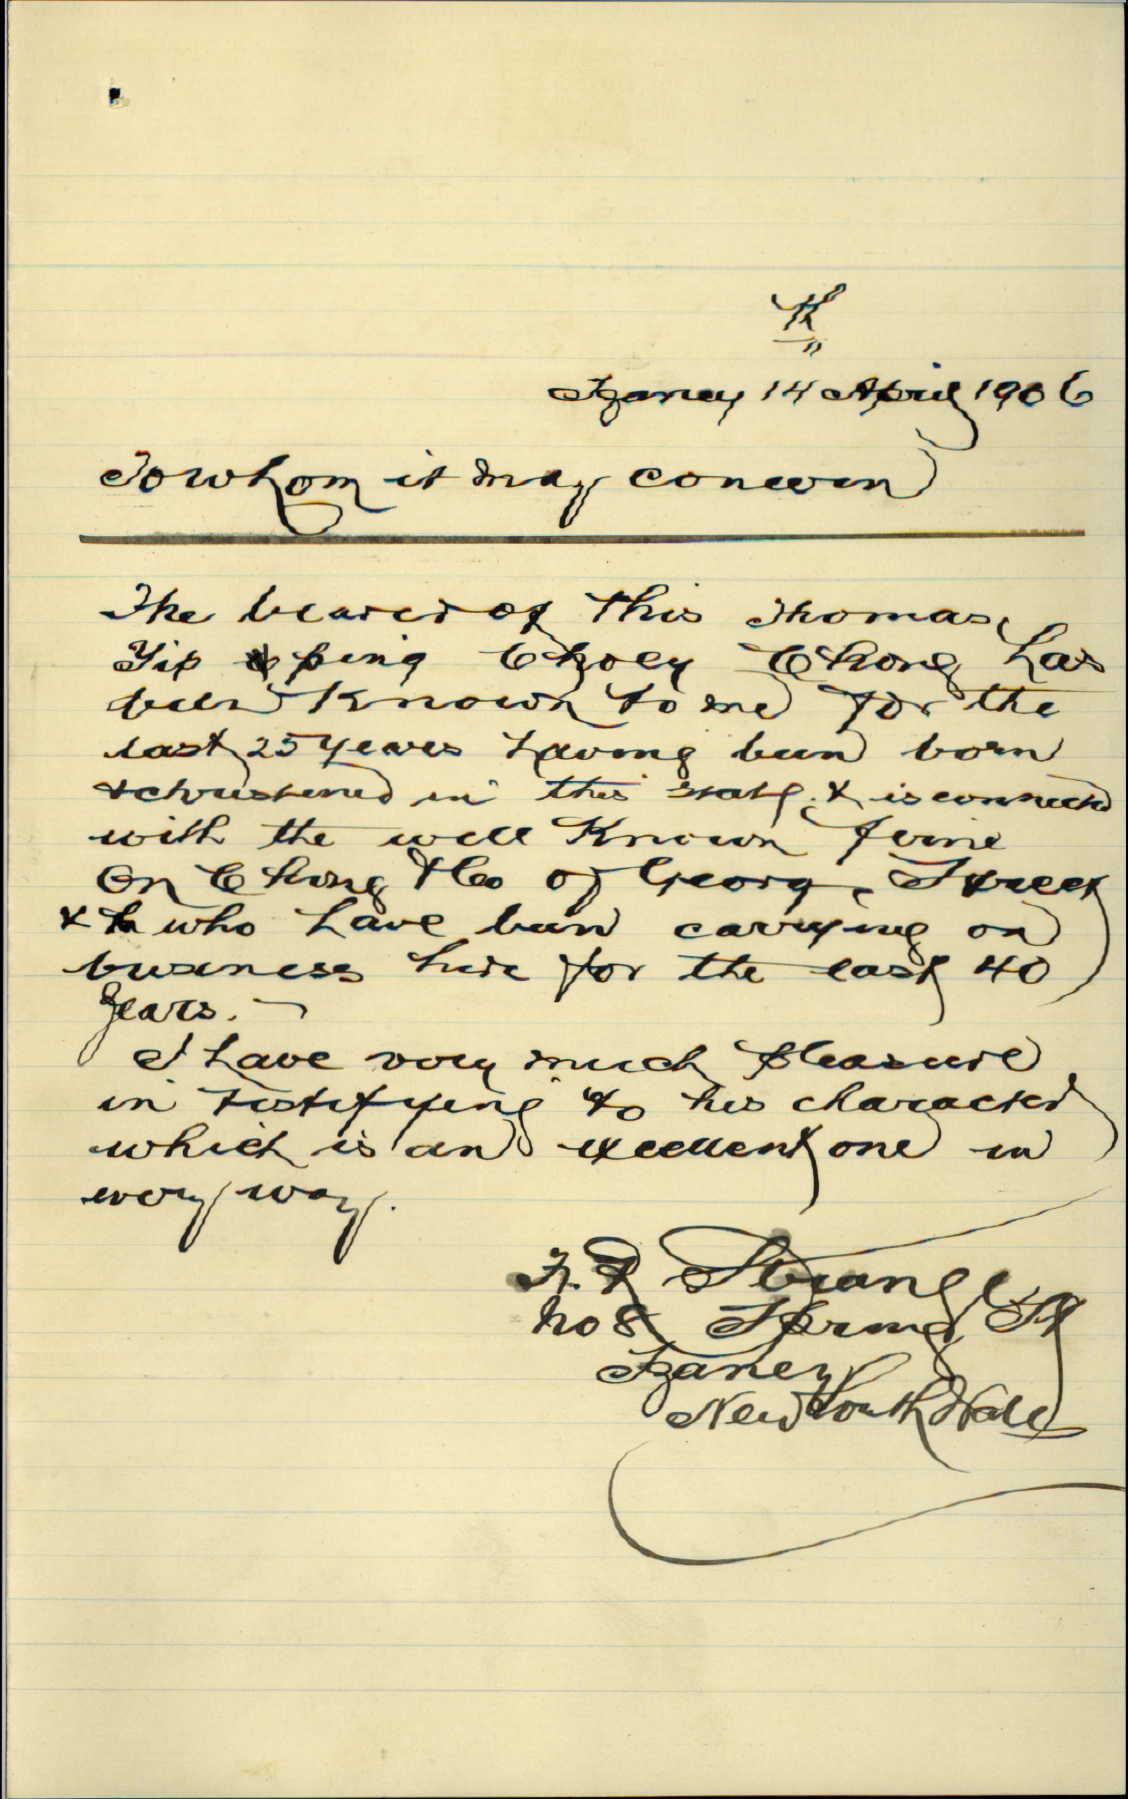 th
Sydney 14 April 1906
To whom it may concern
The bearer of this Thomas
Yip ping Choey Chong has
been Known to me for the
last 25 years having been born
& christened in this state, & is connected
with the well Known firm
On Chong & Co of George Street
& who have been carrying on
business here for the last 40
years.
I have very much pleasure
in testifying to his character
which is an excellent one in
every way.
Strange
No 8 Spring St
Sydney
New South Wales